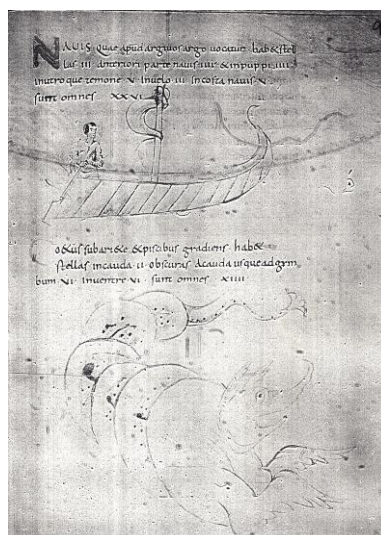 NAVIS Quae apud argiuos argo uocatur habet stel
las III anteriori parte nauis IIII & in puppi IIII
in utroque remone V In uelo III In costa nauis V
sunt omnes XXVI
Coetus sub ariete & piscibus gradiens habet
stellas in cauda II obscuras a cauda usque ad gym
bum VI In uentre VI sunt omnes XIIII